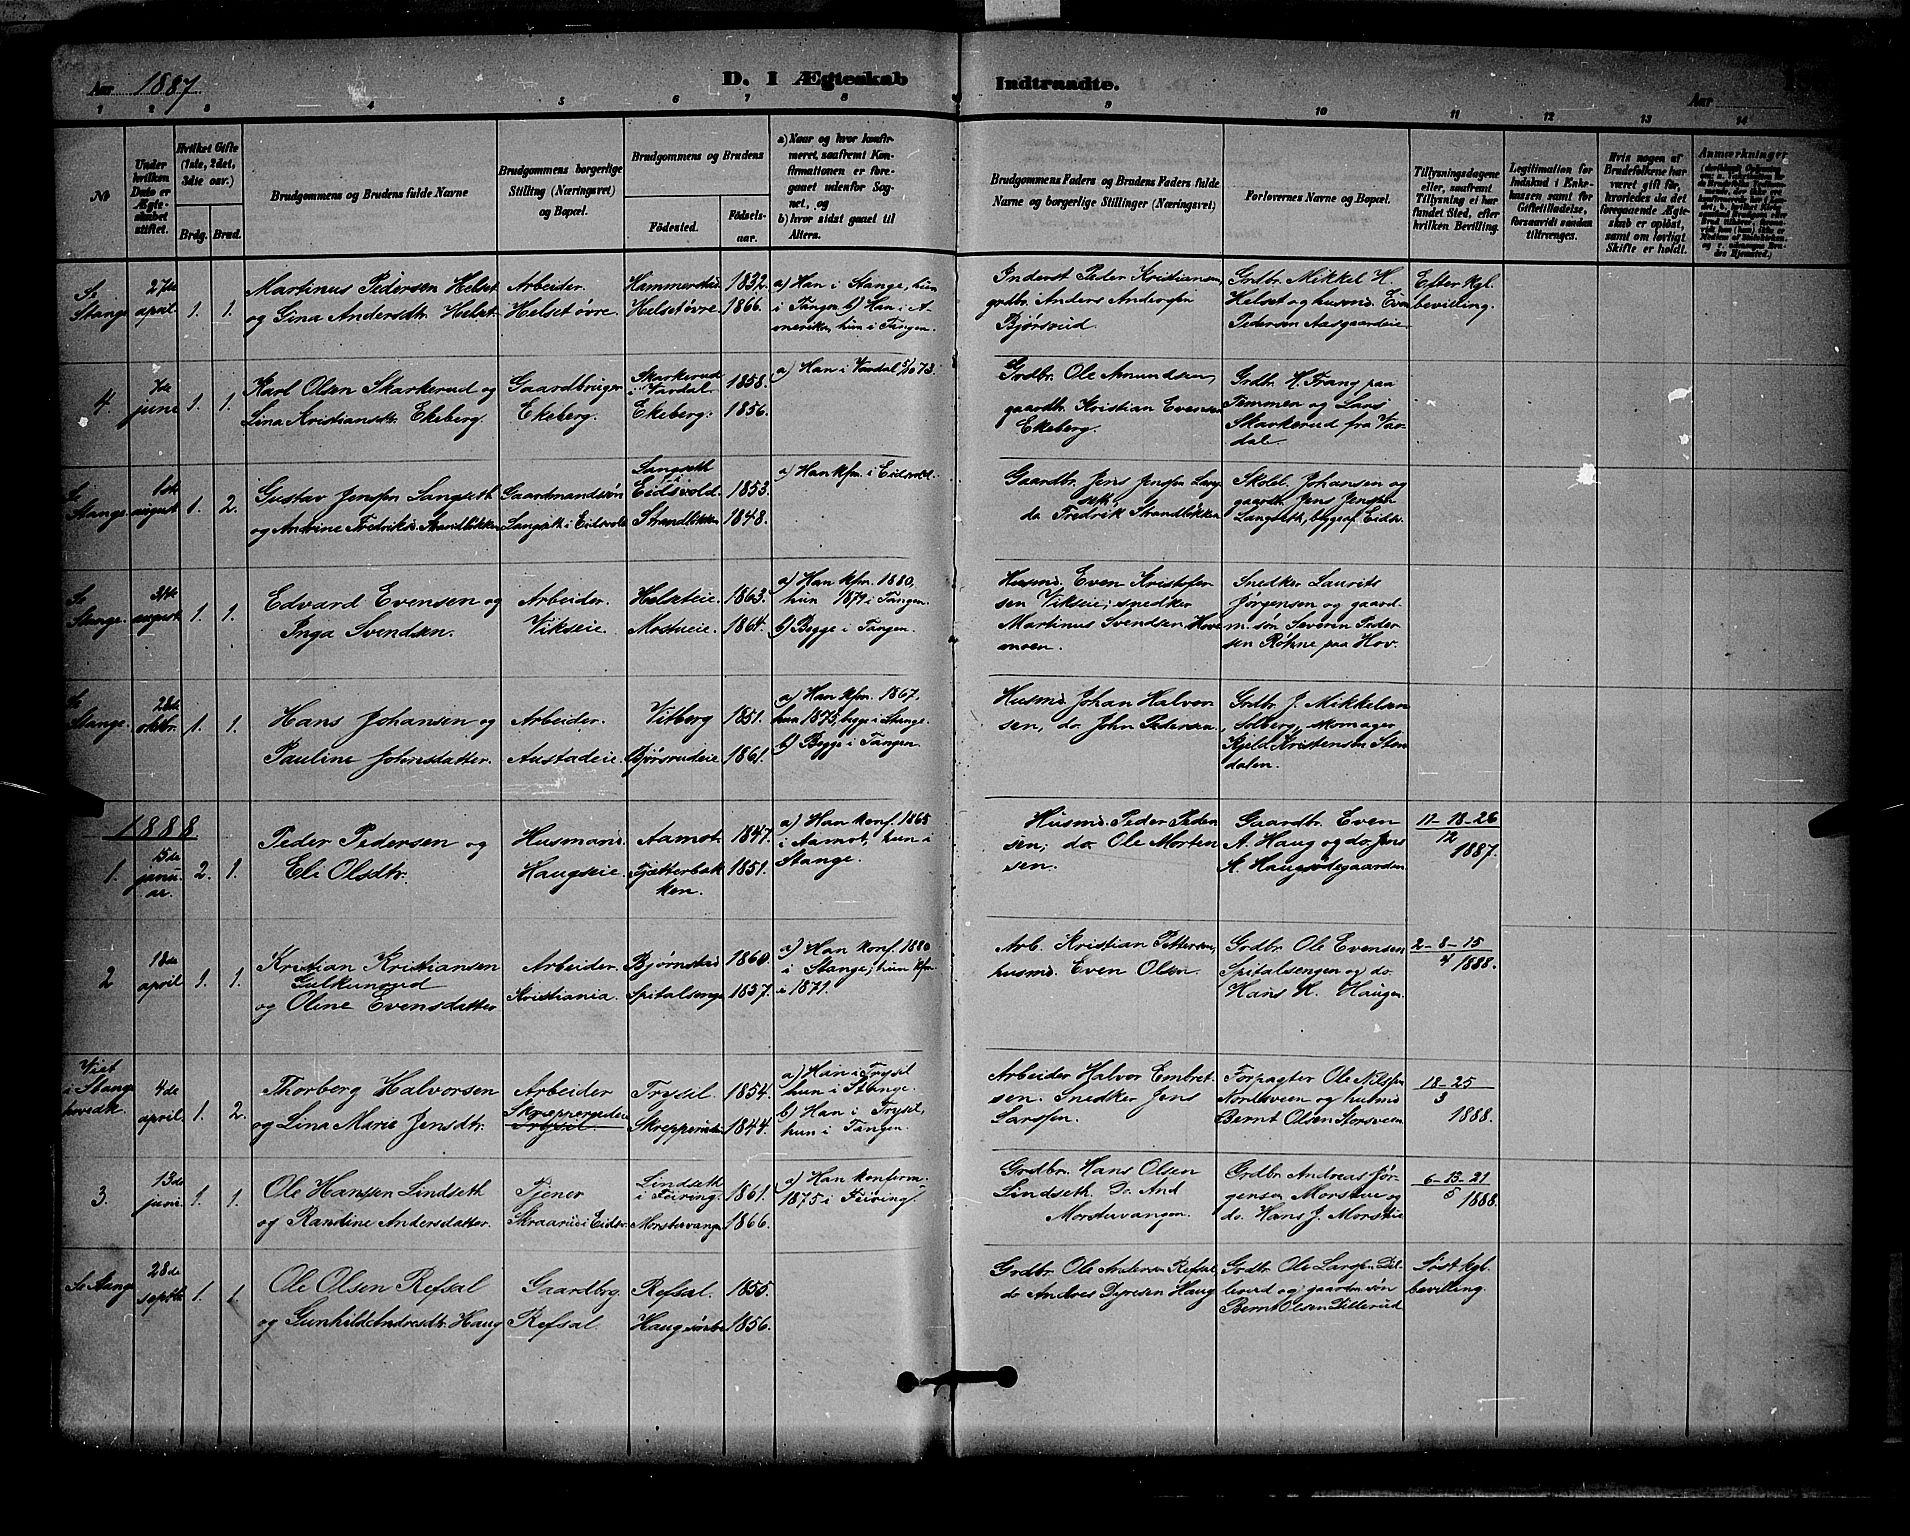 Aar 1887 D. I Ægteskab Indtraadte. Aar
1 2 3 4 5 6 7 8 9 10 11 12 13 14
№
Under hvilken Dato er Ægteskabet stiftet.
Hvilket Gifte (1ste, 2det, 3die osv.)
Brdg. Brud.
Brudgommens og Brudens fulde Navne
Brudgommens borgerlige Stilling (Næringsvei) og Bopæl.
Brudgommens og Brudens
Fødested.
Fødselsaar.
a) Naar og hvor konfirmeret, saafremt Konfirmationen er foregaaet udenfor Sognet, og
b) hvor sidst gaaet til Alters.
Brudgommens Faders og Brudens Faders fulde Navne og borgerlige Stillinger (Næringsvei)
Forlovernes Navne og Bopæl.
Tillysningsdagene eller, saafremt Tillysning ei har fundet Sted, efter hvilken Bevilling.
Legitimation for Indskud i Enkekassen samt for Giftetilladelse, forsaavidt saadan tiltrænges.
Hvis nogen af Brudefolkene har været gift før, hvorledes da det foregaaende Ægteskab er opløst, samt om lovligt Skifte er holdt.
Anmærkninger
Se Stange
27de april
1. 1.
Martinus Pedersen Helset
og Gina Andersdtr. Helset.
Arbeider.
Helset øvre.
Hemmerstad
Helset øvre
1832
1866.
a) Han i Stange, hun
i Tangen b) Han i A-
merika, hun i Tangen.
Inderst Peder Kristiansen
grdbr. Anders Andersen
Bjørsrud.
Grdbr. Mikkel H.
Helset og husmd. Even
Pedersen Aasgaardeie.
Efter kgl.
bevilling.
4.
7de june
1. 1.
Karl Olsen Skarkerud og
Lina Kristiansdtr. Ekeberg.
Gaardbruger
Ekeberg.
Skarkerud
i Vardal.
Ekeberg.
1858.
1856.
a) Han i Vardal 5/10 73.
Grdbr. Ole Amundsen,
gaardbr. Kristian Evensen
Ekeberg.
Grdbr. H. Frang paa
Temmen og Lars
Skarkerud fra Var-
dal.
Se Stange.
1ste august
1. 2.
Gustav Jensen Langseth
og Andrine Fredriksd. Strandløkken
Gaardmandssøn
Langseth i Eidsvold
Langseth
i Eidsvold.
Strandløkken
1853.
1848.
a) Han kfm. i Eidsvold.
Gaardbr. Jens Jensen Lang-
seth
do Fredrik Strandløkken
Skold. Johansen og
gaardb. Jens Jensen
Langseth, begge af Eids.
Se Stange.
august
1. 1.
Edvard Evensen og
Inga Svendsen.
Arbeider.
Vikseie.
Helseteie.
Mostueie.
1863.
1864.
a) Han kfm. 1880,
hun 1879 i Tangen.
b) Begge i Tangen.
Husmd. Even Kristofer-
sen Vikseie; snedker
Martinus Svendsen Hove-
moen.
Snedker Laurits
Jørgensen og gaard-
m. søn Severin Peder-
sen Røhne paa Hov.
Se Stange.
28de oktbr.
1. 1.
Hans Johansen og
Pauline Johnsdatter.
Arbeider.
Austadeie.
Vitberg
Bjørsrudeie
1851.
1861.
a) Han kfm. 1867,
hun 1875, begge i Stange.
b) Begge i Tangen.
Husmd. Johan Halvor-
sen, do. John Pedersen
Grdbr. J. Mikkelsen
Solberg, skomager
Kjeld Kristensen Sten-
dalen.
1888
1.
15de januar.
2. 1.
Peder Pedersen og
Eli Olsdtr.
Husmand
Haugseie.
Aamot.
Fjætterbak-
ken.
1847.
1851.
a) Han konf. 1865
i Aamot, hun i
Stange.
Husmd. Peder Peder-
sen; do. Ole Morten-
sen.
Gaardbr. Even
A. Haug og do. Jens
A. Haugsødegaarden
11-18-26
12
1887.
2
18de april
1. 1.
Kristian Kristiansen
Gulkunrud
og Oline Evensdatter
Arbeider.
Kristiania.
Bjørnstad
Spitalsenge
1860.
1857.
a) Han konf. 1880
i Stange; hun kfm.
i 1871.
Arb. Kristian Pettersen,
husmd. Even Olsen.
Grdbr. Ole Evensen
Spitalsengen og do.
Hans H. Haugen
2-8-15
4 1888.
Viet
i Stange
hovedk.
4de april.
1. 2.
Thorberg Halvorsen
og Lina Marie Jensdtr.
Arbeider
Skrepperudeie
Trysil
Trysil.
Skrepperudei
1854.
1844.
a) Han i Trysil
hun i Stange.
b) Han i Trysil,
hun i Tangen.
Arbeider Halvor Embret-
sen. Snedker Jens
Larsen.
Forpagter Ole Nilsen
Nordsveen og husmd
Bernt Olsen Storsveen
18-25
3
1888.
3.
13de juni
1. 1.
Ole Hansen Lindseth
og Randine Andersdatter.
Tjener
Skraarud i Eidsv.
Lindseth
i Feiring.
Morstuvangen
1861.
1866.
a) Han konfirm.
1875 i Feiring.
Grdbr. Hans Olsen
Lindseth. Do. And
Morstuvangen.
Grdbr. Andreas Jør-
gensen Morstue og
do. Hans J. Morstue
6-13-21
5 1888.
Se Stange
28de septb.
1. 1.
Ole Olsen Refsal
og Gunhild Andresdtr. Haug
Gaardbrg.
Refsal.
Refsal.
Haug søndre
1855.
1856.
Grdbr. Ole Andersen Refsal
do Andres Dyresen Haug
Grdbr. Ole Larsen Dil-
lerud og gaardm.søn
Bernt Olsen Dillerud
Løst kgl.
bevilling.